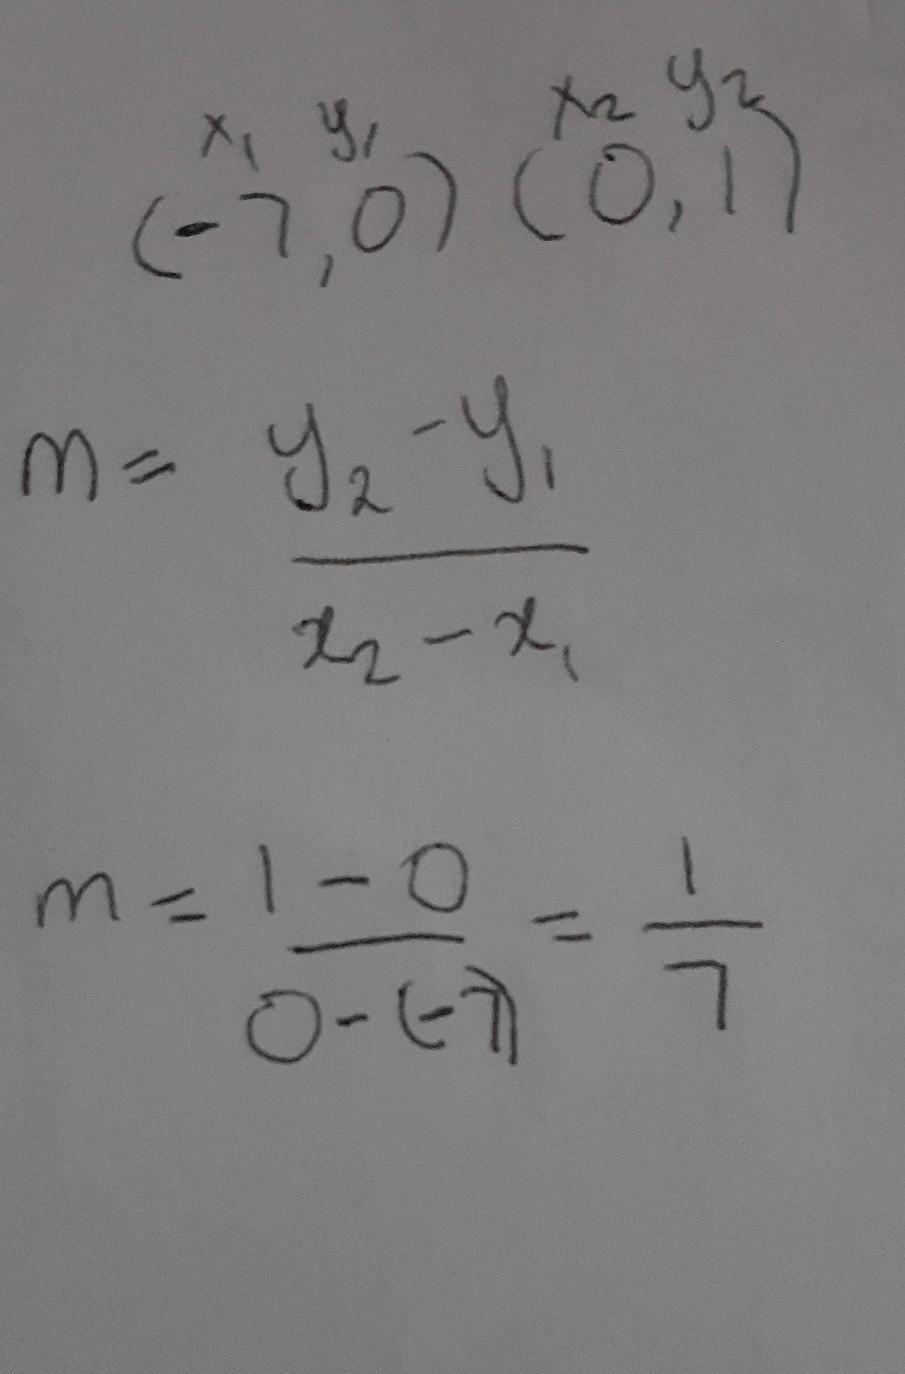 x₁ y₁ x₂ y₂
(-7,0) (0,1)
m = y₂ - y₁
x₂ - x₁
m = 1 - 0 = 1
0 - (-7) 7